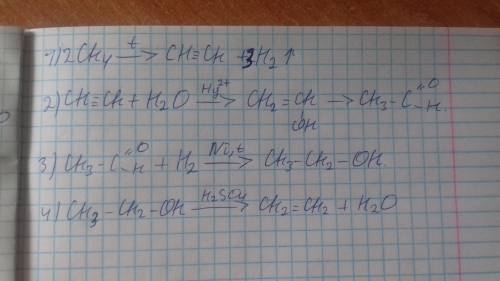 1) 2CH₄ –t→ CH≡CH + 3H₂ ↑
2) CH≡CH + H₂O –Hg²⁺→ CH₂=CH → CH₃–C=O–H.
OH
3) CH₃–C=O–H + H₂ –Ni,t→ CH₃–CH₂–OH.
4) CH₃–CH₂–OH –H₂SO₄→ CH₂=CH₂ + H₂O